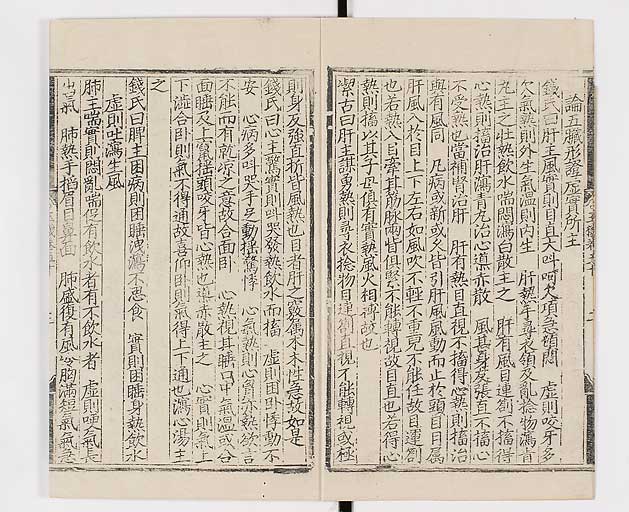 論五臟形證虛實所主
錢氏曰肝主風實則目直大叫呵欠項急頓悶 虛則咬牙多
欠氣熱則外生氣溫則内生 肝熱手尋衣領及亂捻物瀉青
丸主之壯熱飲水喘悶瀉白散主之 肝有風目連劄不搐得
心熱則搐治肝瀉青丸治心導赤散 風甚身反張直不搐心
不受熱也當補腎治肝 肝有熱目直視不搐得心熱則搐治
與有風同 凡病或新或久皆引肝風風動而止於頭目目屬
肝風入於目上下左右如風吹不輕不重兒不能任故目連劄
也若熱入目牽其筋脉兩眥俱緊不能轉視故目直也若得心
熱則搐以其子母俱有實熱風火相搏故也
潔古曰肝主謀勇熱則尋衣捻物目連劄直視不能轉視或極
則身反強直折皆風熱也目者肝之竅屬木木性急故如是
錢氏曰心主驚實則叫哭發熱飲水而搐 虛則困卧悸動不
安 心病多叫哭手足動搖驚悸 心氣熱則心胷亦熱欲言
不能而有就冷之意故合面卧 心熱視其睡口中氣溫或合
面睡及上竄搖頭咬牙皆心熱也導赤散主之 心實則氣上
下澁合卧則氣不得通故喜仰卧則氣得上下通也瀉心湯主
之
錢氏曰脾主困病則困睡洩瀉不思食 實則困睡身熱飲水
虛則吐瀉生風
肺主喘實則悶亂喘促有飲水者有不飲水者 虛則哽氣長
出氣 肺熱手搯眉目鼻面 肺盛復有風冷胸滿短氣氣急